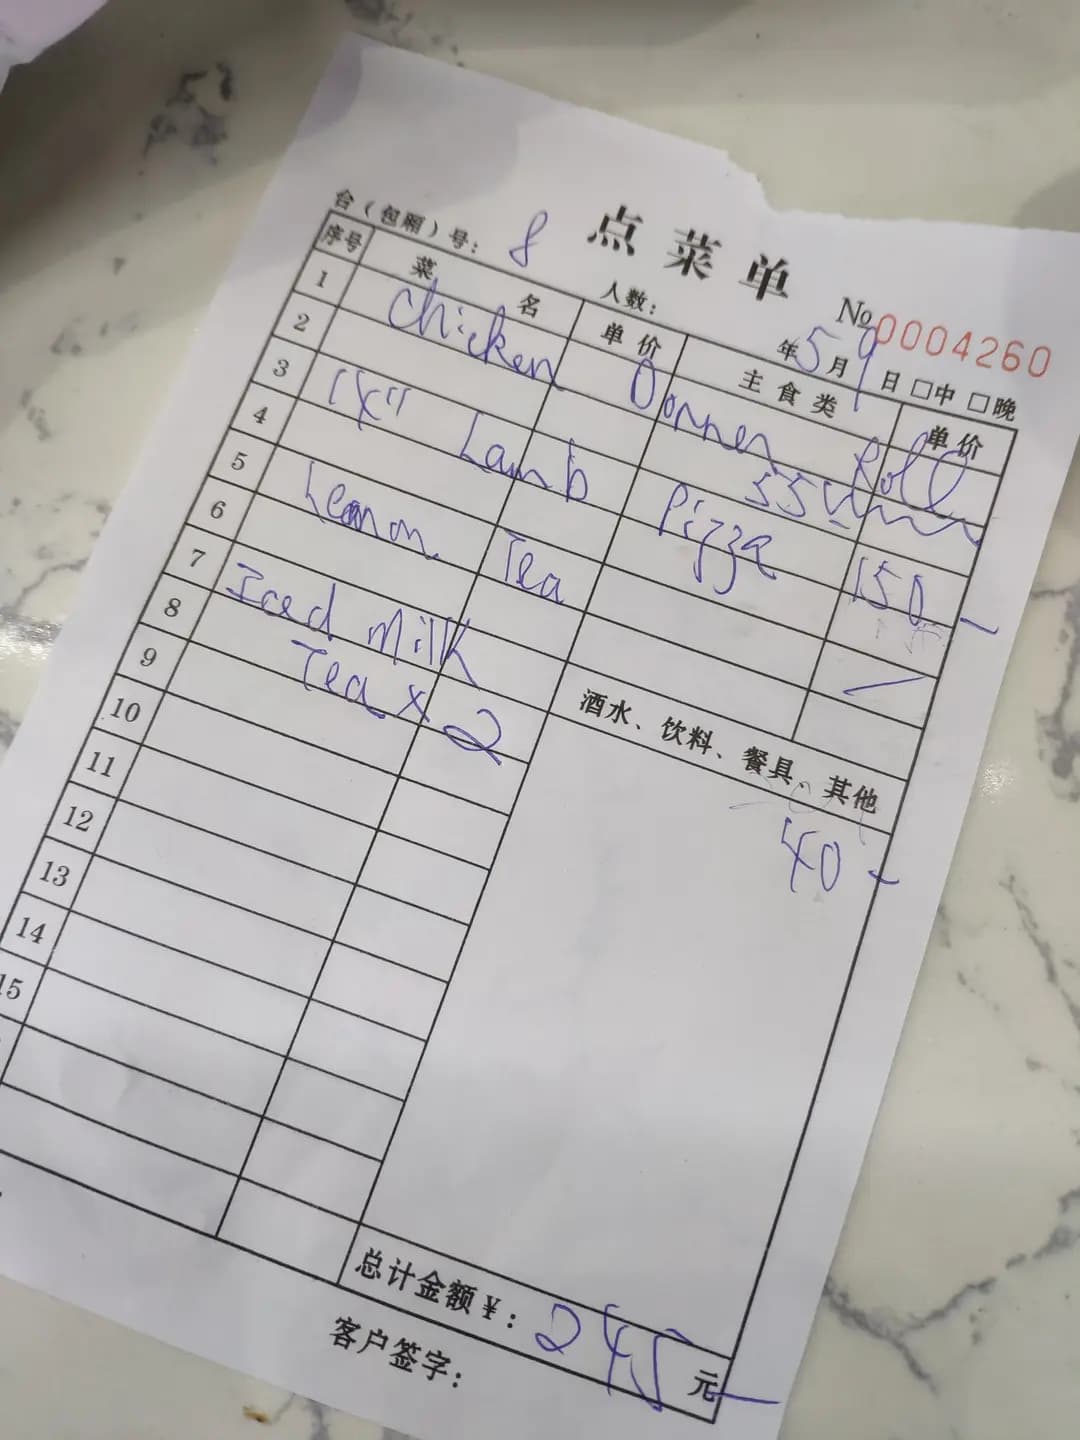 点菜单
台（包厢）号： 8 人数： 年 5 月 9 日 □中 □晚
№ 0004260
序号 菜名 单价 主食类 单价
1
2
3
4
5
6
7
8
9
10
11
12
13
14
15
Chicken Donner Roll
55
Lamb Pizza 150
Lemon Tea
Iced Milk
Tea x 2
酒水、饮料、餐具、其他
40
总计金额¥： 245 元
客户签字：